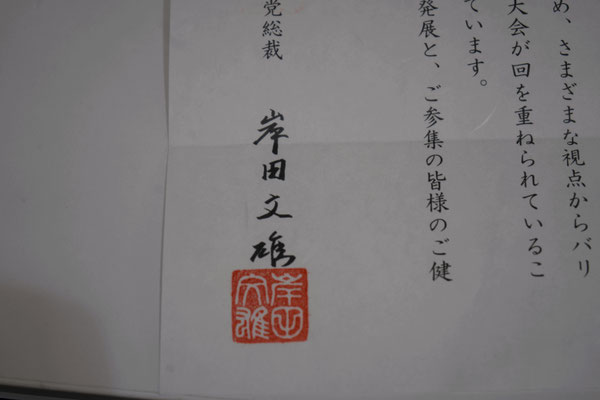 め、さまざまな視点からバリ
大会が回を重ねられているこ
ています。
発展と、ご参集の皆様のご健
党総裁
岸田文雄
岸田文雄